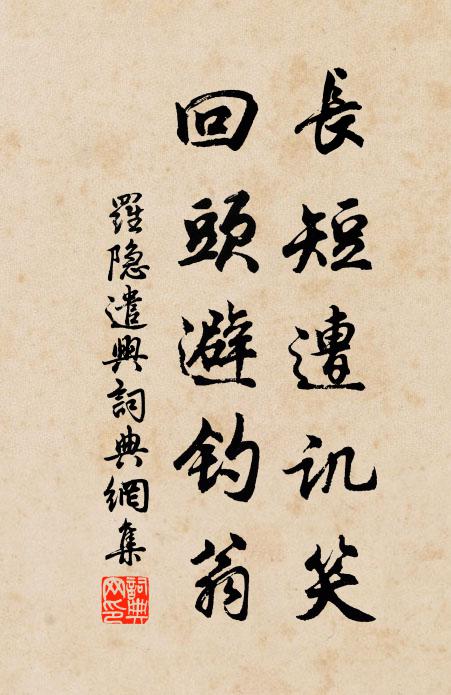 長短遭讥笑
回頭避钓翁
羅隐遣興詞典網集
詞典网印